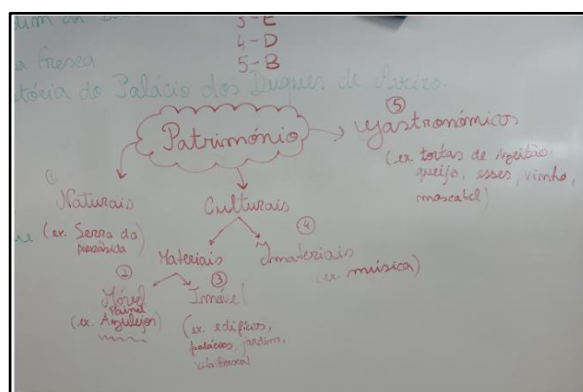 3-E
4-D
a Fresca
5-B
tória do Palácio dos Duques de Aveiro.
Património
5
Gastronómicos
(ex tortas de Azeitão
queijo, esses, vinho,
moscatel)
1
Naturais
(ex. Serra da
Arrábida)
Culturais
4
Materiais
Imateriais
(ex. música)
2
Móvel
Painel
(ex. Azulejos)
3
Imóvel
(ex. edifícios,
palácios, jardim,